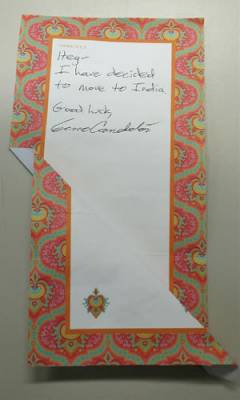 Hey-
I have decided
to move to India
Good luck,